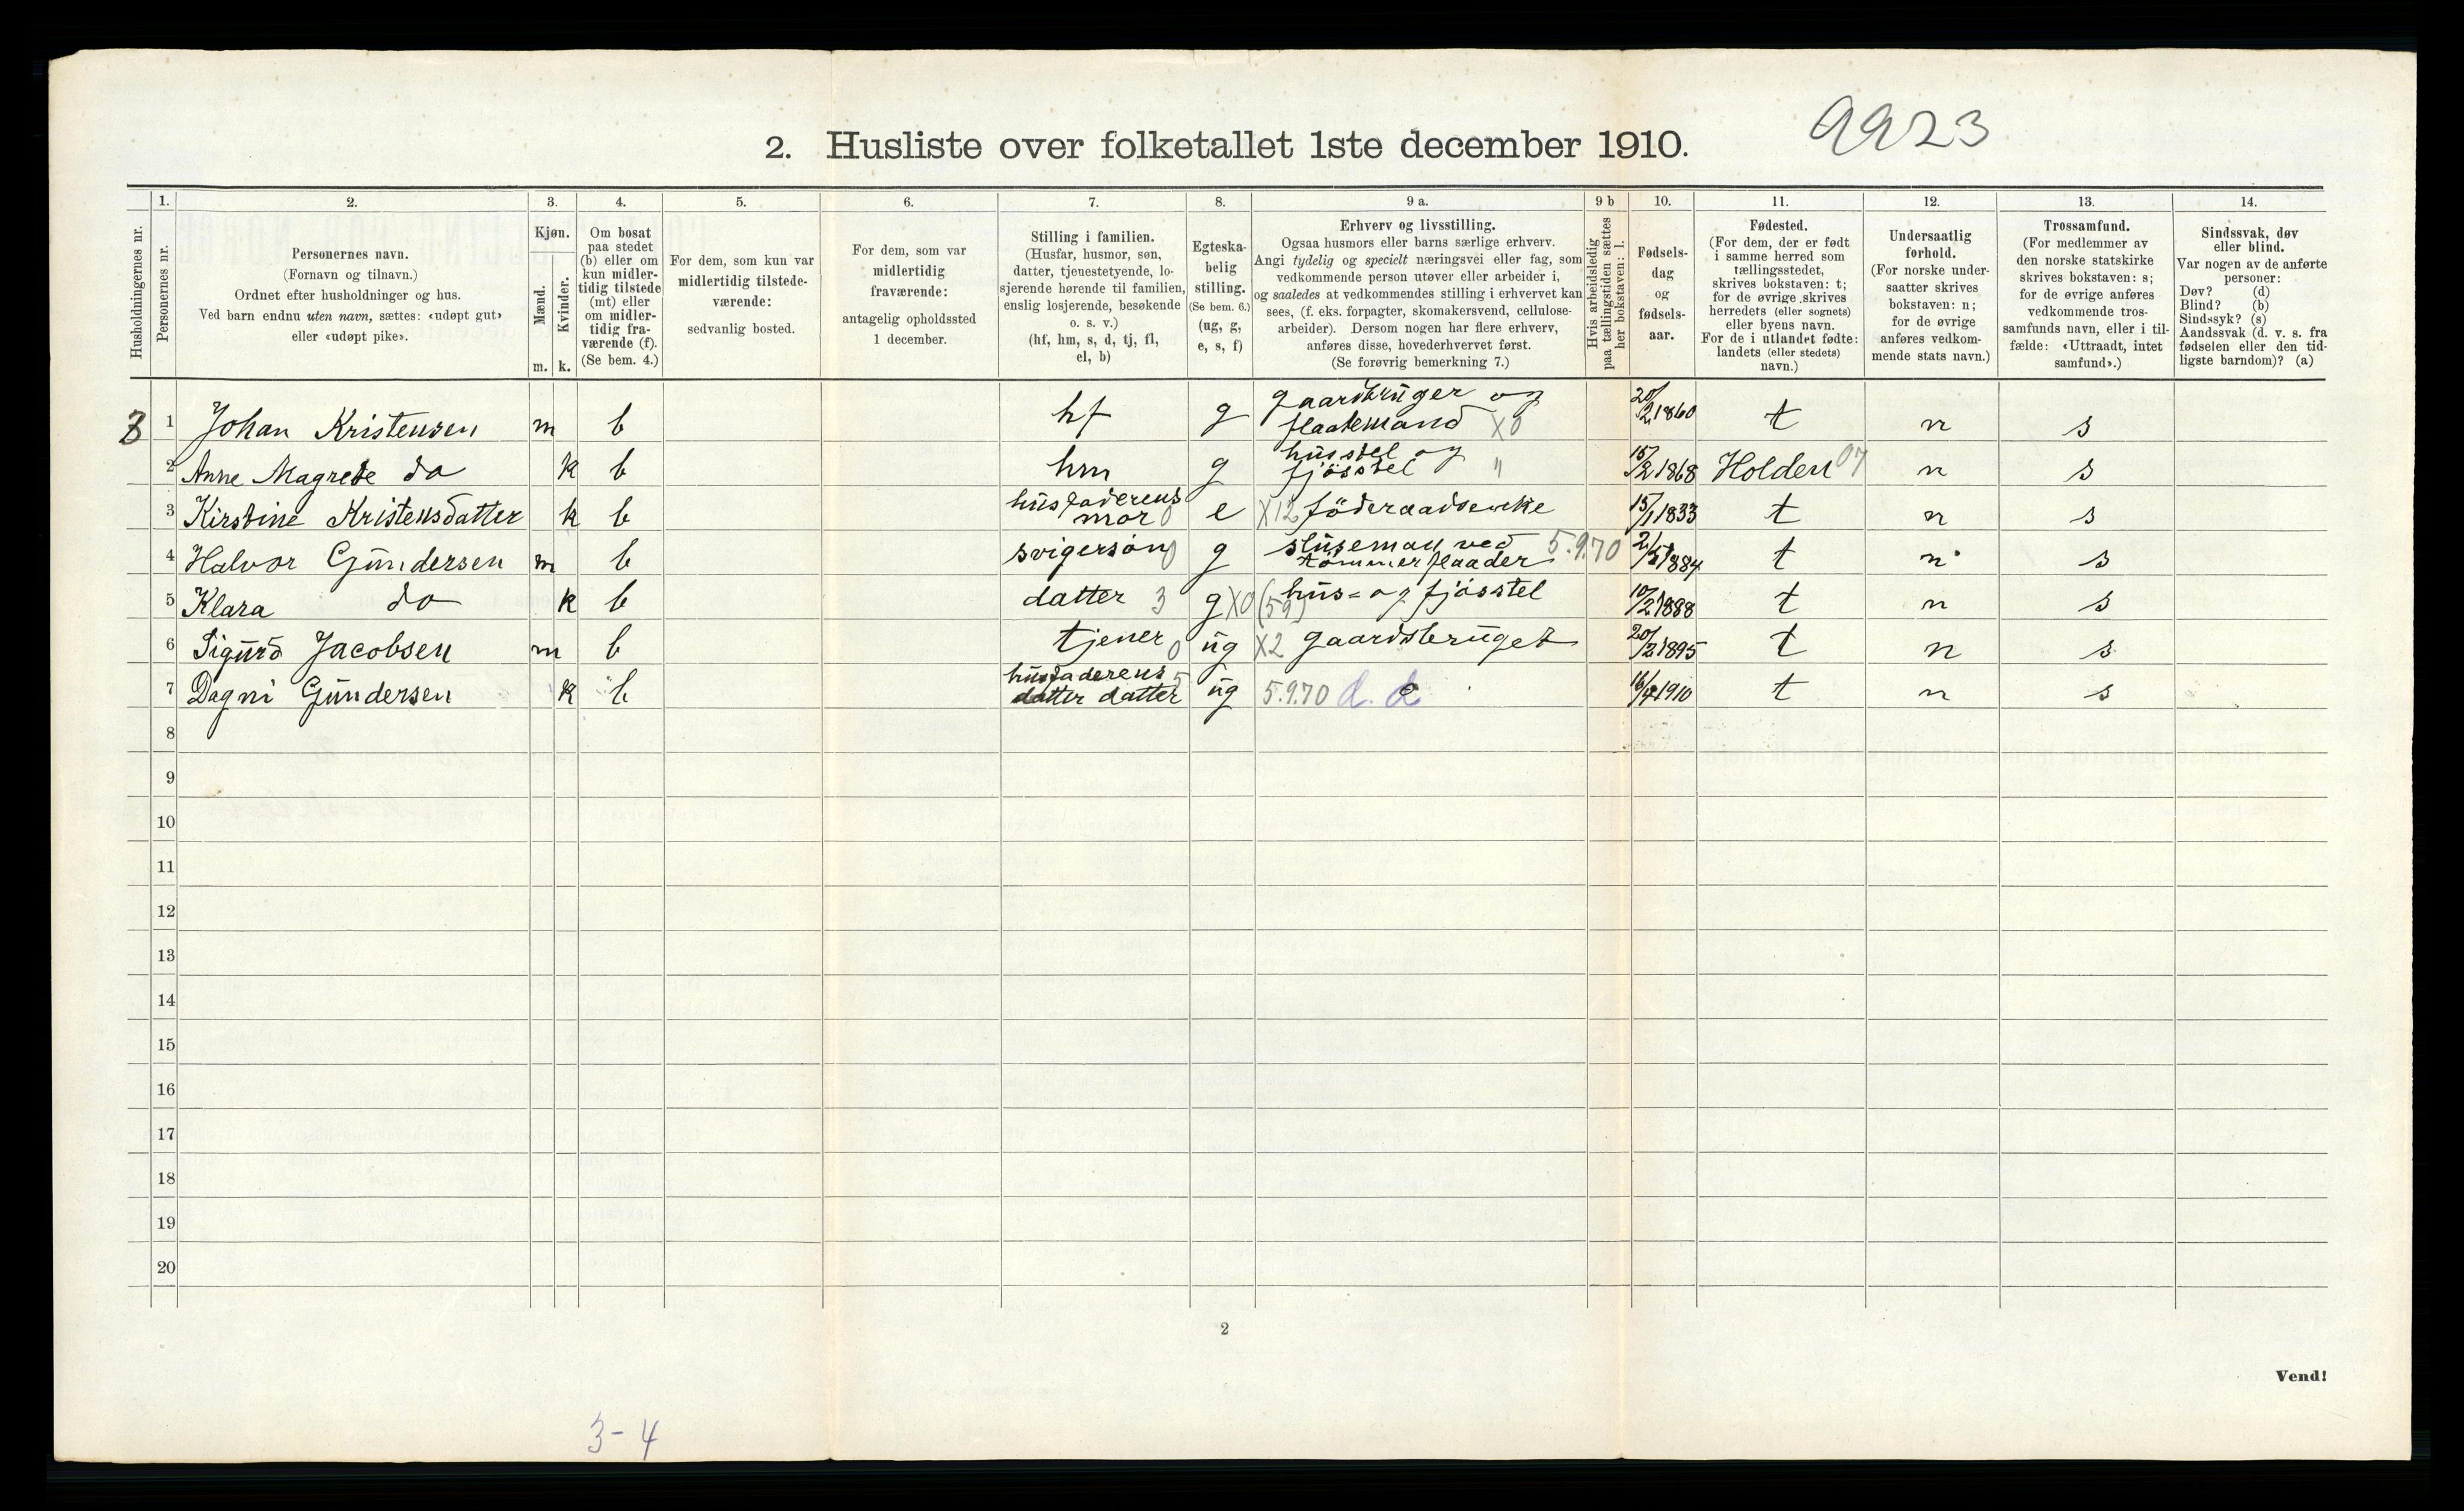 9923
2. Husliste over folketallet 1ste december 1910.
Husholdningernes nr.
1.
Personernes nr.
2.
Personernes navn.
(Fornavn og tilnavn.)
Ordnet efter husholdninger og hus.
Ved barn endnu uten navn, sættes: «udøpt gut»
eller «udøpt pike».
3.
Kjøn.
Mænd.
Kvinder.
m. k.
4.
Om bosat
paa stedet
(b) eller om
kun midler-
tidig tilstede
(mt) eller
om midler-
tidig fra-
værende (f).
(Se bem. 4.)
5.
For dem, som kun var
midlertidig tilstede-
værende:
sedvanlig bosted.
6.
For dem, som var
midlertidig
fraværende:
antagelig opholdssted
1 december.
7.
Stilling i familien.
(Husfar, husmor, søn,
datter, tjenestetyende, lo-
sjerende hørende til familien,
enslig losjerende, besøkende
o. s. v.)
(hf, hm, s, d, tj, fl,
el, b)
8.
Egteska-
belig
stilling.
(Se bem. 6.)
(ug, g,
e, s, f)
9 a.
Erhverv og livsstilling.
Ogsaa husmors eller barns særlige erhverv.
Angi tydelig og specielt næringsvei eller fag, som
vedkommende person utøver eller arbeider i,
og saaledes at vedkommendes stilling i erhvervet kan
sees, (f. eks. forpagter, skomakersvend, cellulose-
arbeider). Dersom nogen har flere erhverv,
anføres disse, hovederhvervet først.
(Se forøvrig bemerkning 7.)
9 b
Hvis arbeidsledig
paa tællingstiden sættes
her bokstaven: l.
10.
Fødsels-
dag
og
fødsels-
aar.
11.
Fødested.
(For dem, der er født
i samme herred som
tællingsstedet,
skrives bokstaven: t;
for de øvrige skrives
herredets (eller sognets)
eller byens navn.
For de i utlandet fødte:
landets (eller stedets)
navn.)
12.
Undersaatlig
forhold.
(For norske under-
saatter skrives
bokstaven: n;
for de øvrige
anføres vedkom-
mende stats navn.)
13.
Trossamfund.
(For medlemmer av
den norske statskirke
skrives bokstaven: s;
for de øvrige anføres
vedkommende tros-
samfunds navn, eller i til-
fælde: «Uttraadt, intet
samfund».)
14.
Sindssvak, døv
eller blind.
Var nogen av de anførte
personer:
Døv? (d)
Blind? (b)
Sindssyk? (s)
Aandssvak (d. v. s. fra
fødselen eller den tid-
ligste barndom)? (a)
1 Johan Kristensen m b hf g gaardbruger og flaatemand X0 20/2 1860 t n s
2 Anne Magrete do k b hm g husstel og fjösstel " 15/2 1868 Holden 07 n s
3 Kirstine Kristensdatter k b husfaderens mor 0 e X12 föderaadsenke 15/1 1833 t n s
4 Halvor Gundersen m b svigersön 0 g sluseman ved tömmerflaader 5.9.70 2/5 1884 t n s
5 Klara do k b datter 3 g X0 (59) hus= og fjösstel 10/2 1888 t n s
6 Sigurd Jacobsen m b tjener 0 ug X2 gaardsbruget 20/2 1895 t n s
7 Dagni Gundersen k b husfaderens datter datter 5 ug 5.9.70 d. d 16/4 1910 t n s
8
9
10
11
12
13
14
15
16
17
18
19
20
2
Vend!
3-4